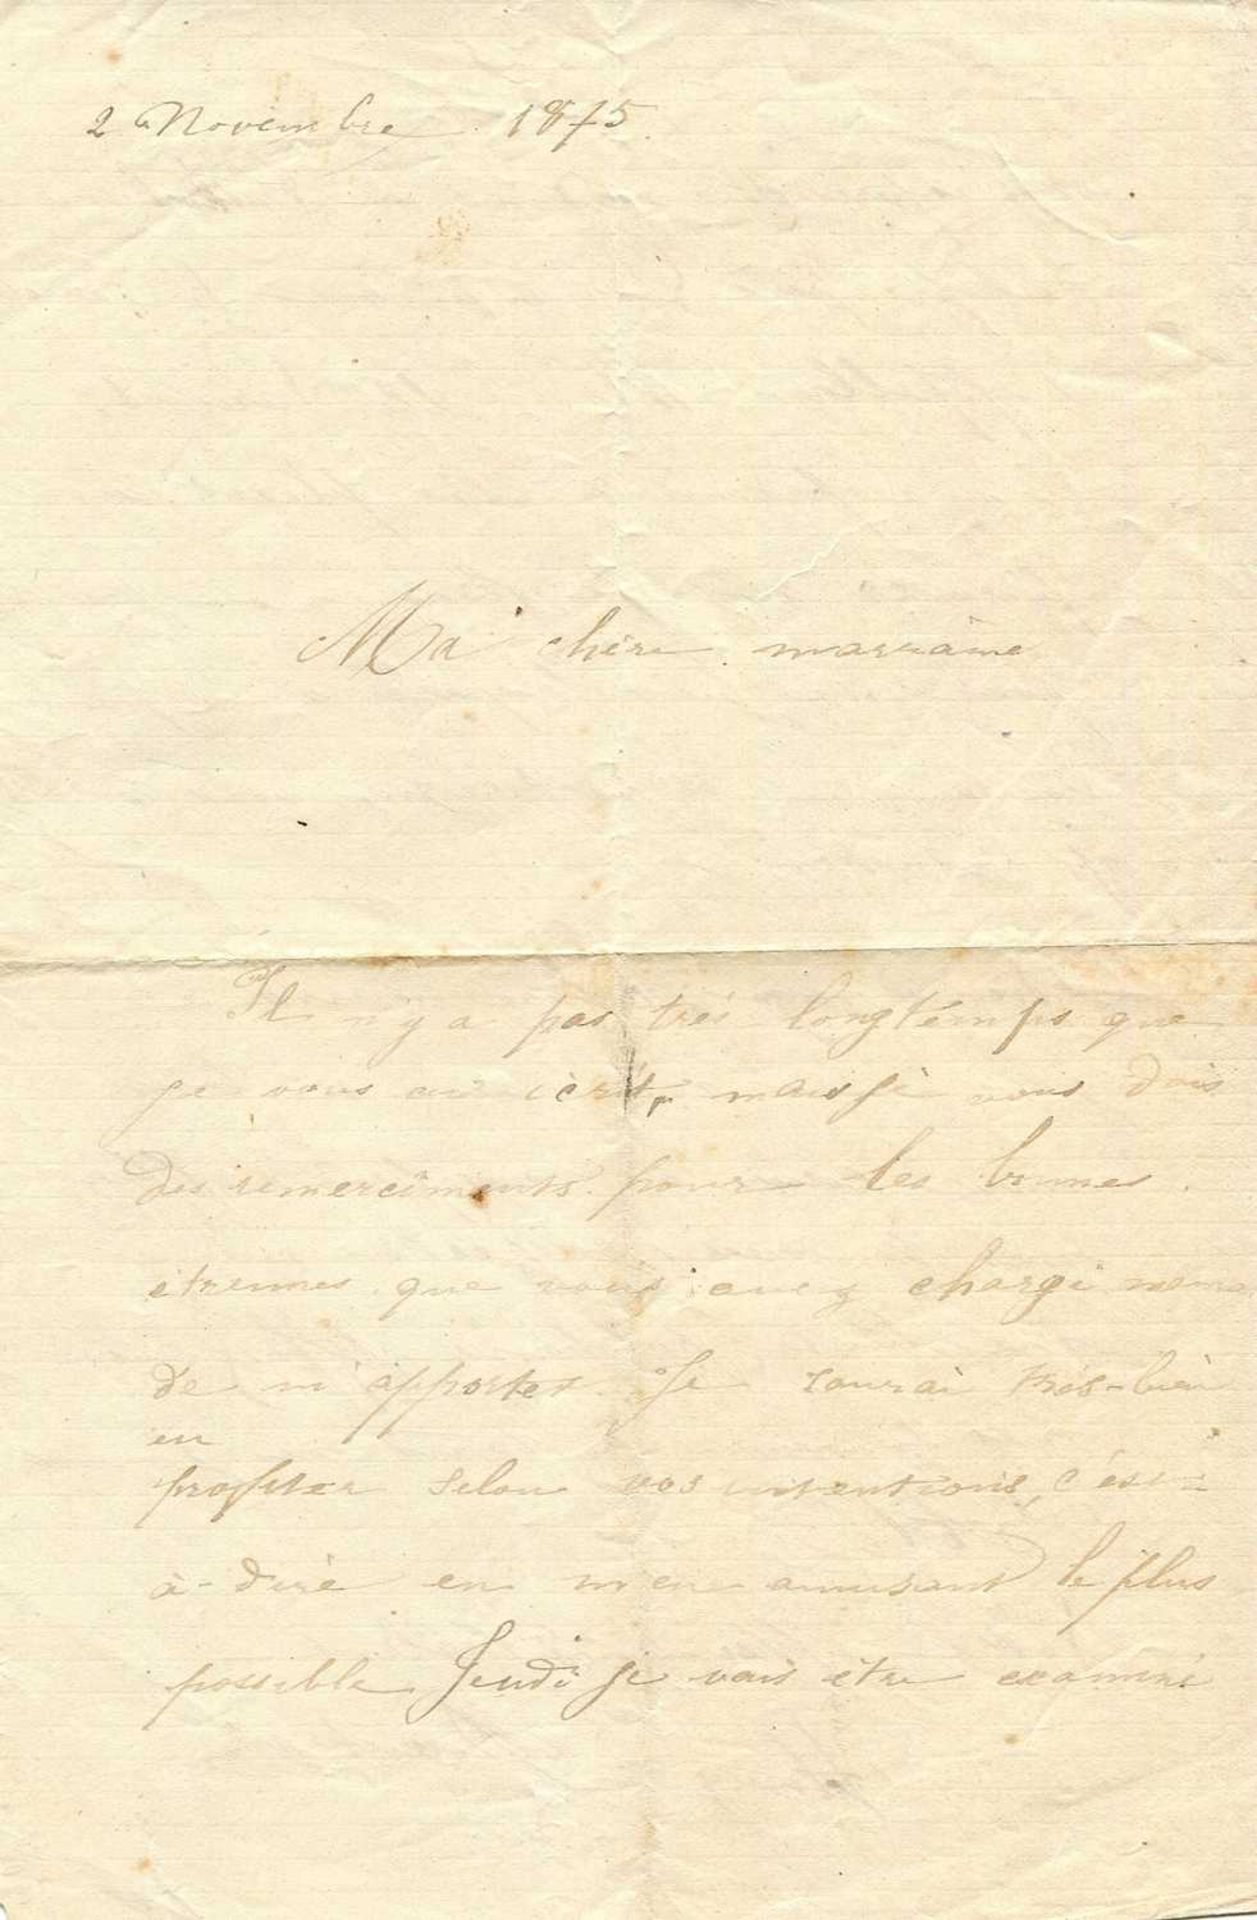 2 Novembre 1875.
Ma chère marraine
Il n'y a pas très longtemps que
je vous ai écrit, mais je vous dois
des remerciments pour les bonnes
étrennes que vous avez chargé
de m'apporter. Je saurai très-bien
en
profiter selon vos intentions, c'est-
à-dire en m'en amusant le plus
possible. Jeudi je vais être examiné